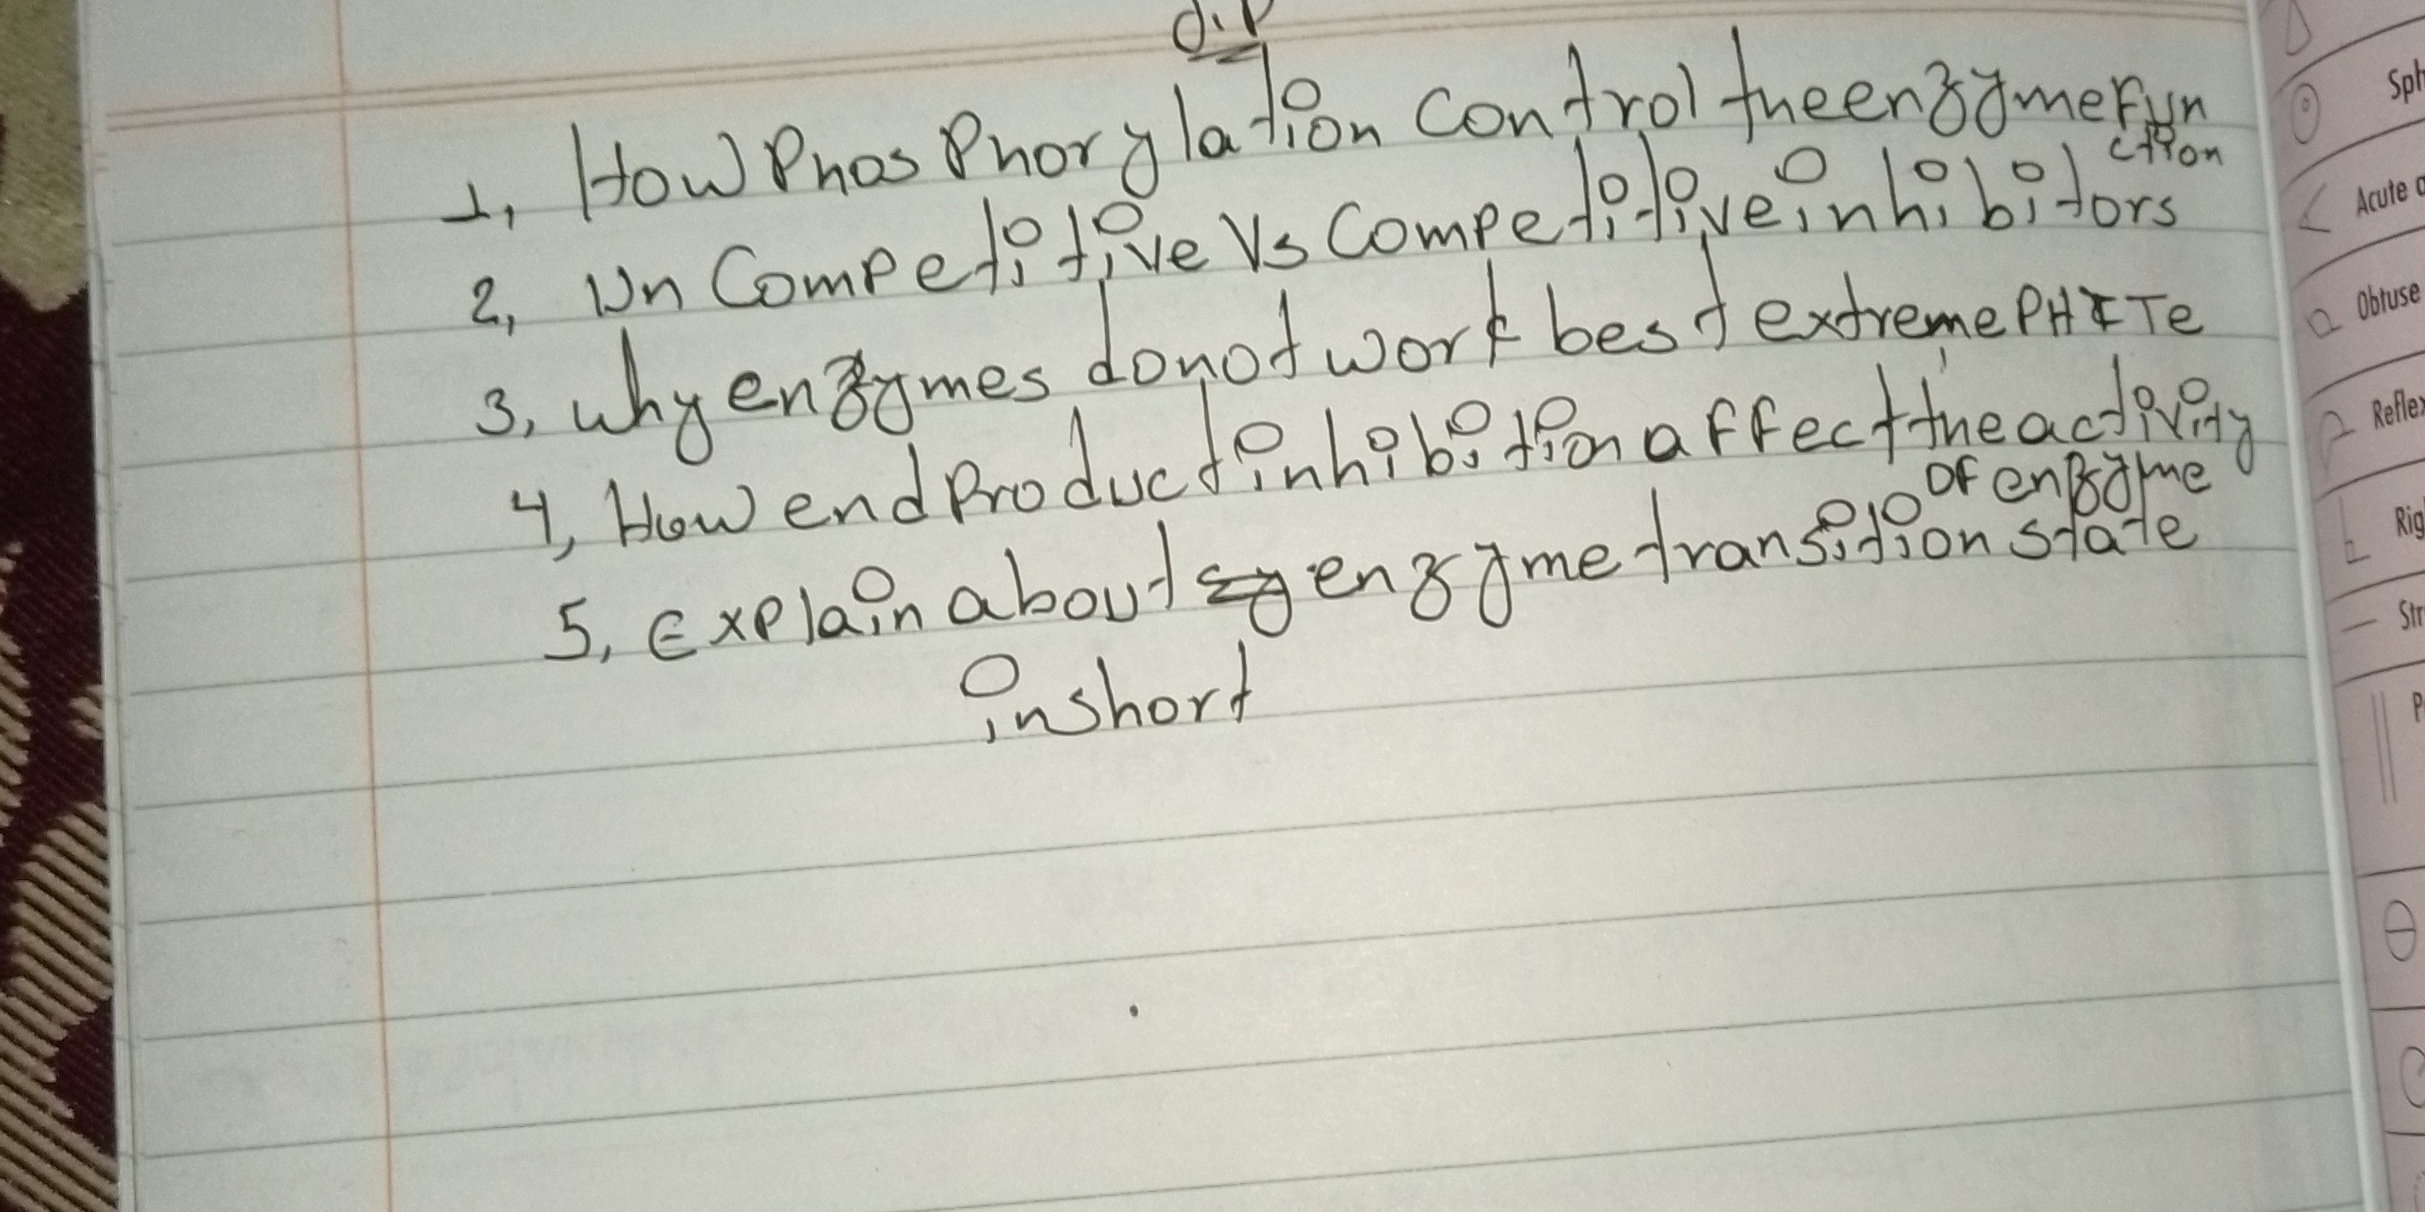 1, How Phosphorylation control the enzyme Fun
ction
2, Un Competitive Vs Competitive inhibitors
3, why enzymes do not work best extreme PH & Te
4, How end Product inhibition affect the activity
of enzyme
5, Explain about enzyme transition state
in short
Sph
Acute
Obtuse
Reflex
Rig
Str
P